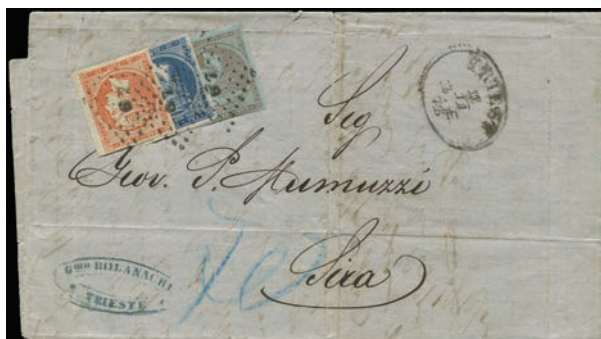 67
67
67
TRIEST
12
Sig
Giov. P. Mumuzzi
Sira
BOLANACHI
TRIESTE